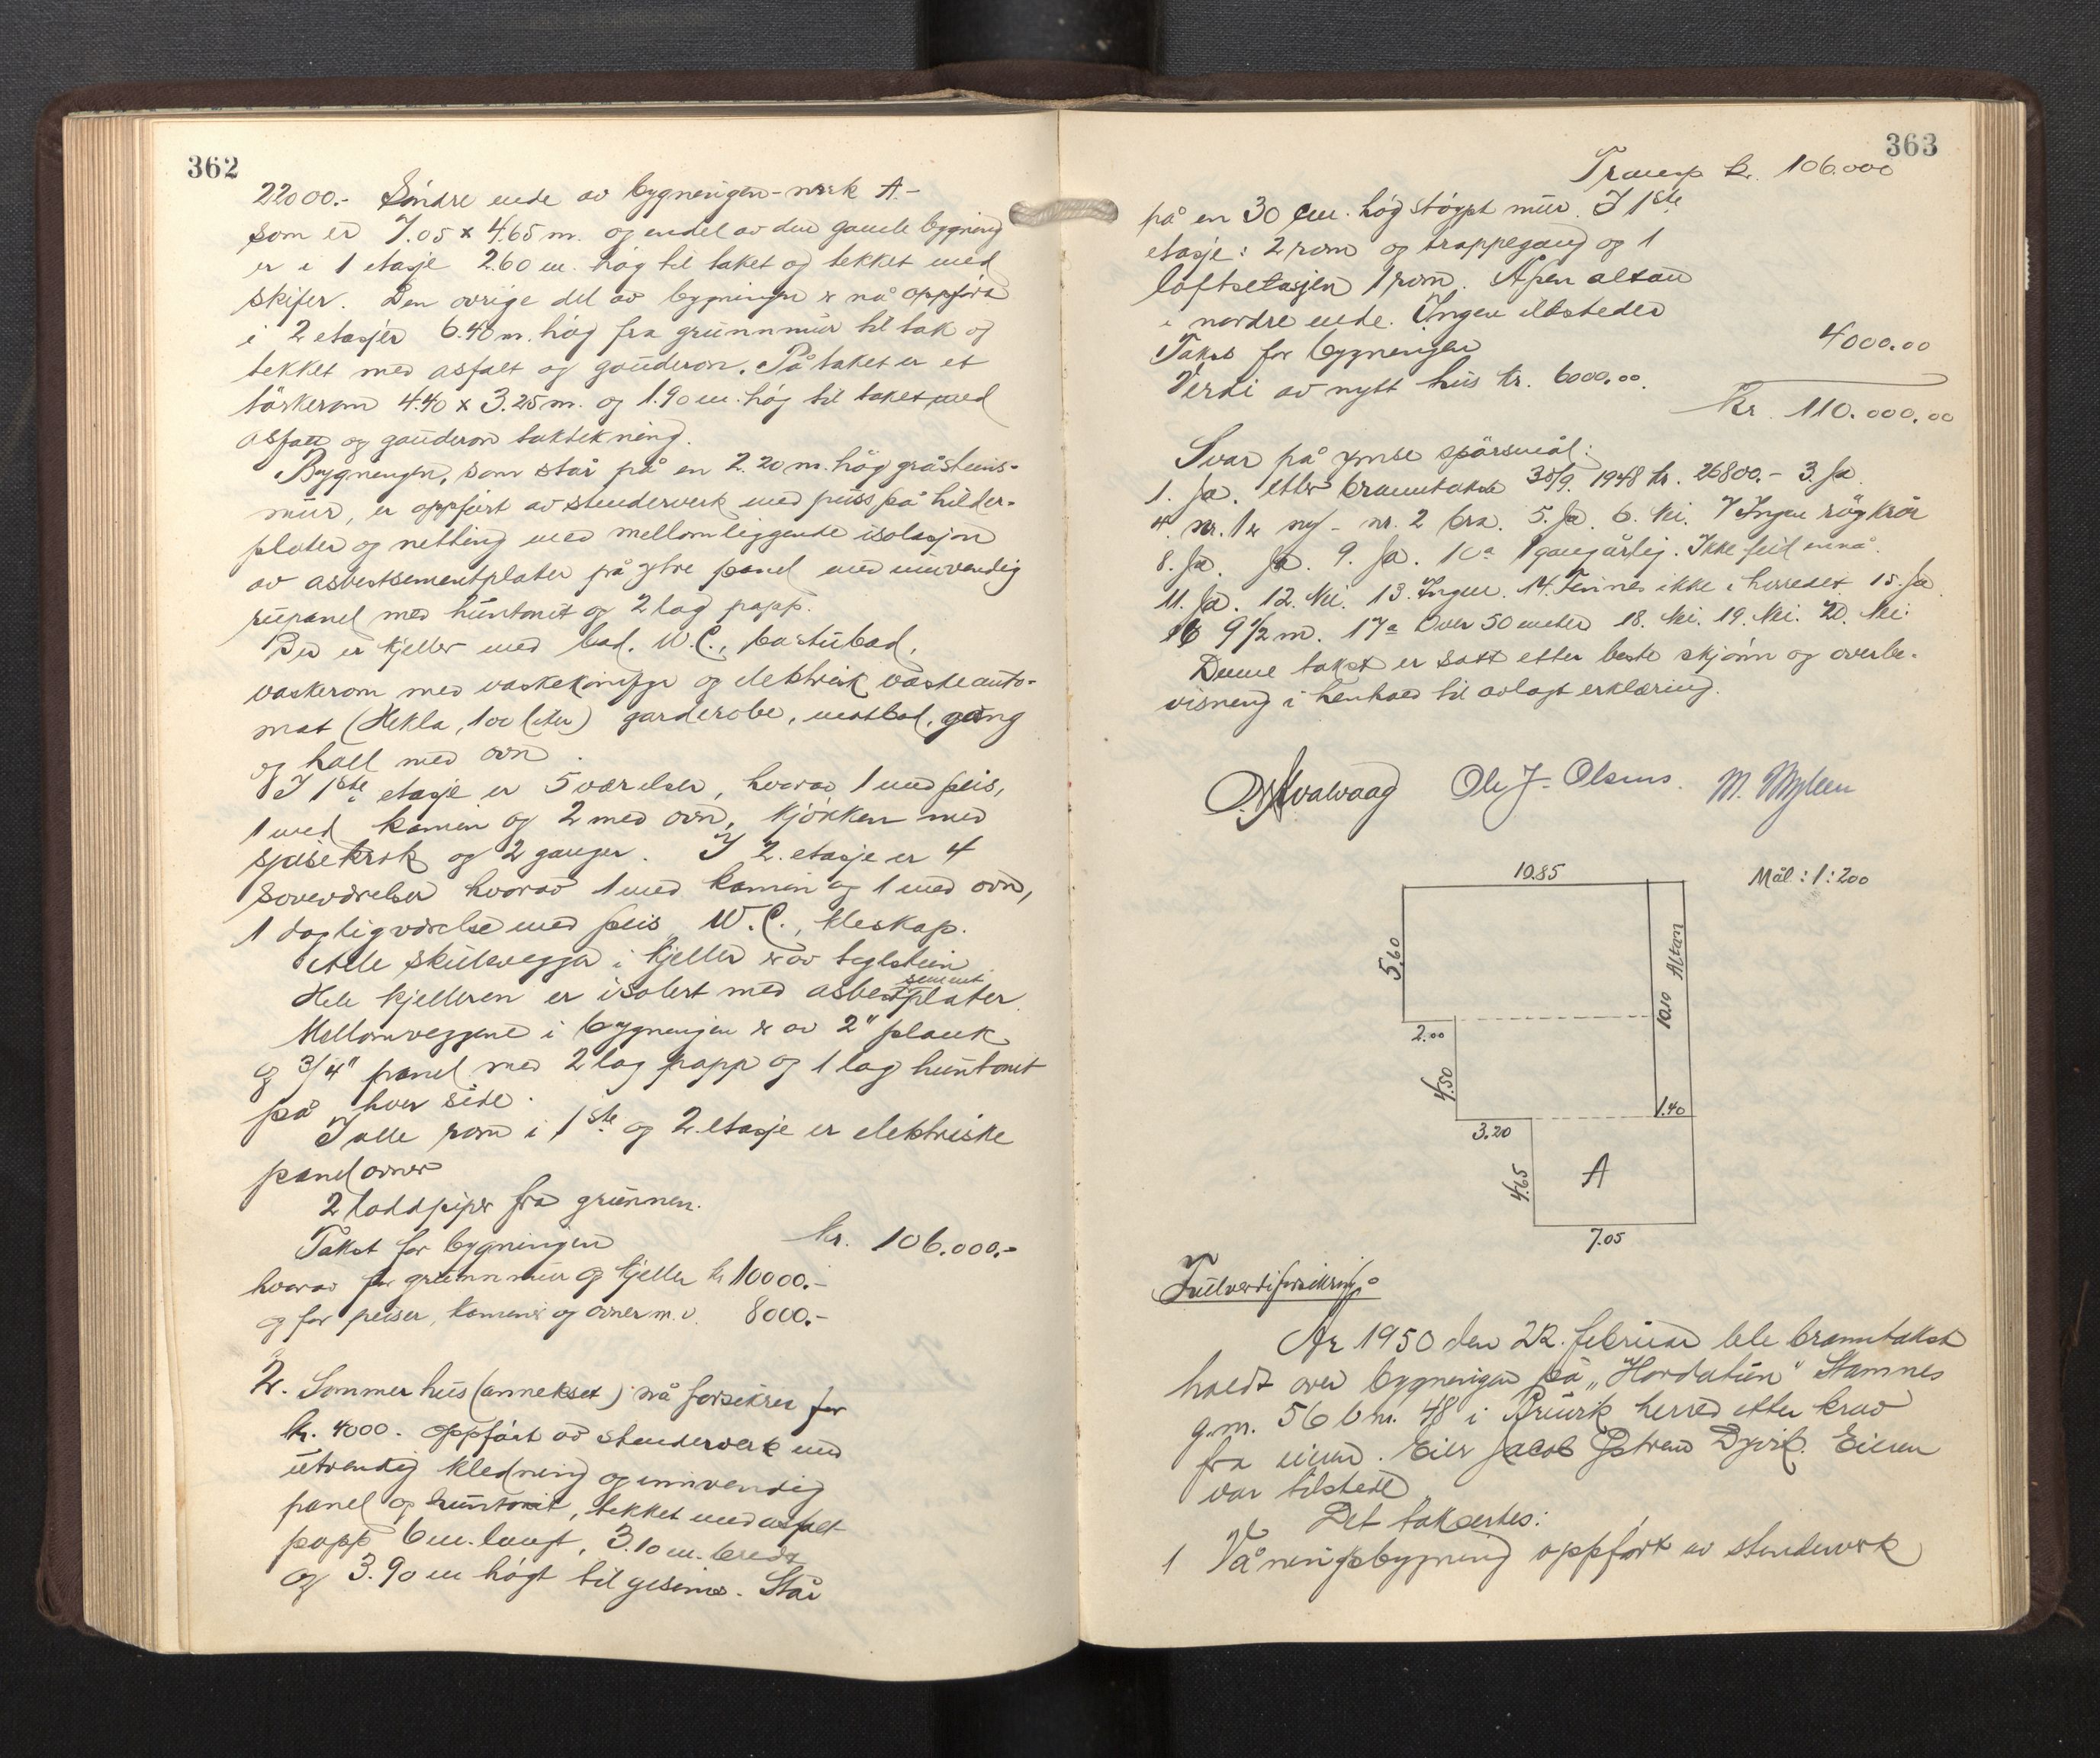 362
22000.- Söndre ende av bygningen - merk A -
som er 7.05 x 4.65 m. og endel av den gamle bygning
er i 1 etasje 2.60 m. hög til taket og tekket med
skifer. Den övrige del av bygningen er nå oppfört
i 2 etasjer 6.40 m. hög fra grunnmur til tak og
tekket med asfalt og gouderon. På taket er et
törkerom 4.40 x 3.25 m. og 1.90 m. hög til taket med
asfalt og gouderon taktekning.
Bygningen, som står på en 2.20 m. hög gråsteins-
mur, er oppfört av stenderverk med puss på hilder-
plater og netting med mellomliggende isolasjon
av asbestsementplater på ytre panel med innvendig
rupanel med huntonit og 2 lag papp.
Der er kjeller med bad, W.C., bastubad,
vaskerom med og elektrisk vaskeauto-
mat (Hekla, 100 liter) garderobe, matbod, gang
og hall med ovn.
I 1ste etasje er 5 værelser, hvorav 1 med peis,
1 med kamin og 2 med ovn, kjökken med
spisekrok og 2 ganger. I 2. etasje er 4
soveværelser hvorav 1 med kamin og 1 med ovn,
1 dagligværelse med peis, W.C., kleskap.
Alle skillevegger i kjeller er av teglstein
Hele kjelleren er isolert med asbestsementplater.
Mellomveggene i bygningen er av 2" plank
og 3/4" panel med 2 lag papp og 1 lag huntonit
på hver side.
I alle rom i 1ste og 2. etasje er elektriske
panelovner
2 loddpiper fra grunnen.
Takst for bygningen kr. 106.000.-
hvorav for grunnmur og kjeller kr 10000.-
og for peiser, kaminer og ovner m.v. 8000.-
2. Sommerhus (annekset) nå forsikret for
kr. 4000. Oppfört av stenderverk med
utvendig kledning og innvendig
panel og huntonit, tekket med asfalt
papp 6 m. langt, 3.10 m. bredt
og 3.90 m högt til gesims. Står
363
Transp kr. 106.000
på en 30 cm. hög stöypt mur. I 1ste
etasje: 2 rom og trappegang og i
loftsetasjen 1 rom. Åpen altan
i nordre ende. Ingen ildsteder
Takst for bygningen 4000.00
Verdi av nytt hus kr. 6000.00.
Kr. 110.000.00
Svar på ymse spörsmål:
1. Ja. etter branntakst 30/9. 1948 kr. 26800.- 3. Ja.
4. nr. 1 er ny - nr. 2 bra. 5. Ja. 6. Nei. 7 Ingen rögkrör
8. Ja. Ja. 9. Ja. 10a 1 gang årlig. Ikke feil ennå.
11. Ja. 12. Nei. 13. Ingen. 14. Finnes ikke i herredet. 15. Ja.
16 9 1/2 m. 17a Over 50 meter 18. Nei. 19. Nei. 20. Nei.
Denne takst er satt etter beste skjönn og overbe-
visning i henhold til avlagt erklæring.
Kvalvaag Ole J. Olsnes. M. Myleen
Mål: 1:200
10.85
5.60
Altan
10.10
2.00
4.50
1.40
3.20
4.65
A
7.05
Fullverdiforsikring
År 1950 den 22. februar ble branntakst
holdt over bygningen på „Hordatun" Stamnes
g.nr. 56 b.nr. 48 i Bruvik herred etter krav
fra eieren. Eier Jacob Dyvik. Eieren
var tilstede
Det takseртes:
1 Våningsbygning oppfört av stenderverk